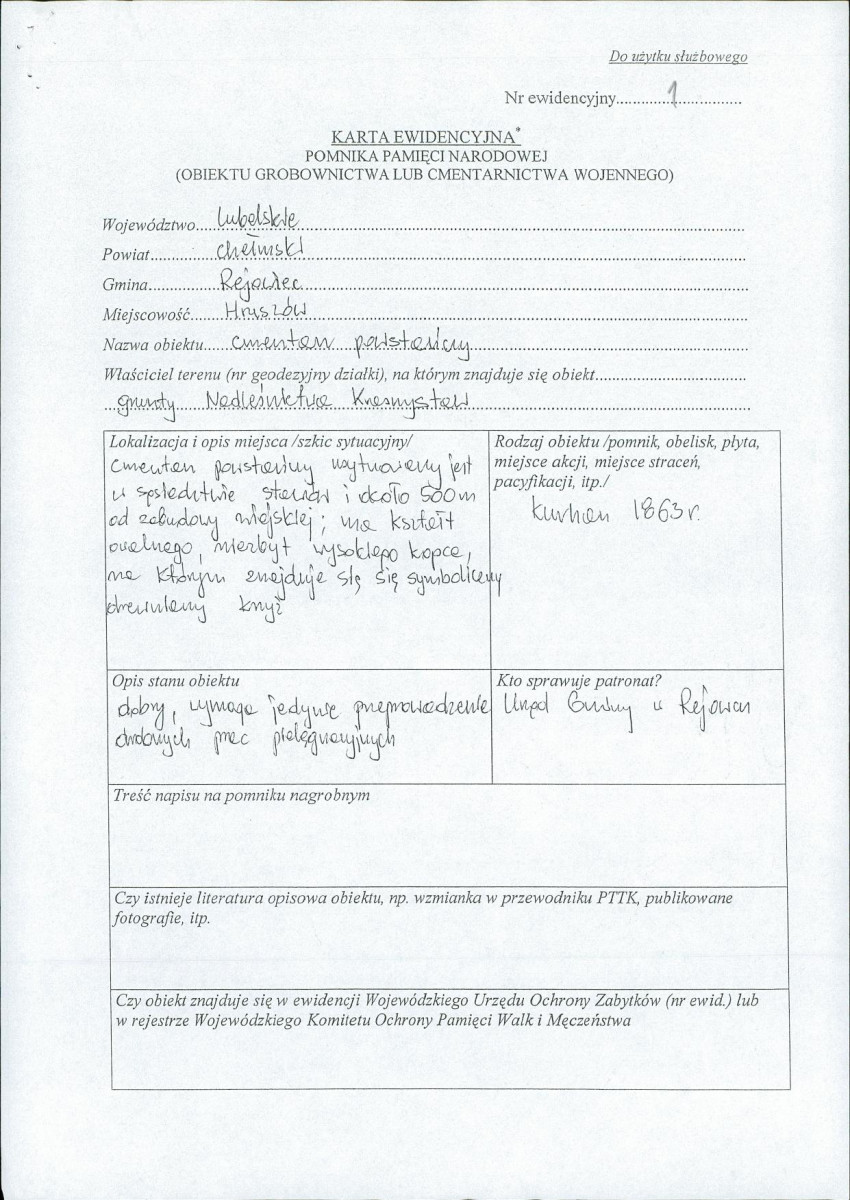 Do użytku służbowego
Nr ewidencyjny..............1..............
KARTA EWIDENCYJNA*
POMNIKA PAMIĘCI NARODOWEJ
(OBIEKTU GROBOWNICTWA LUB CMENTARNICTWA WOJENNEGO)
Województwo lubelskie
Powiat chełmski
Gmina Rejowiec
Miejscowość Hruszów
Nazwa obiektu cmentarz powstańczy
Właściciel terenu (nr geodezyjny działki), na którym znajduje się obiekt
grunty Nadleśnictwa Krasnystaw
Lokalizacja i opis miejsca /szkic sytuacyjny/
cmentarz powstańczy usytuowany jest
w sąsiedztwie stawów i około 500m
od zabudowy wiejskiej; ma kształt
owalnego, niezbyt wysokiego kopca,
na którym znajduje się się symboliczny
drewniany krzyż
Rodzaj obiektu /pomnik, obelisk, płyta,
miejsce akcji, miejsce straceń,
pacyfikacji, itp./
kurhan 1863r.
Opis stanu obiektu
dobry, wymaga jedynie przeprowadzenie
drobnych prac pielęgnacyjnych
Kto sprawuje patronat?
Urząd Gminy w Rejowcu
Treść napisu na pomniku nagrobnym
Czy istnieje literatura opisowa obiektu, np. wzmianka w przewodniku PTTK, publikowane
fotografie, itp.
Czy obiekt znajduje się w ewidencji Wojewódzkiego Urzędu Ochrony Zabytków (nr ewid.) lub
w rejestrze Wojewódzkiego Komitetu Ochrony Pamięci Walk i Męczeństwa